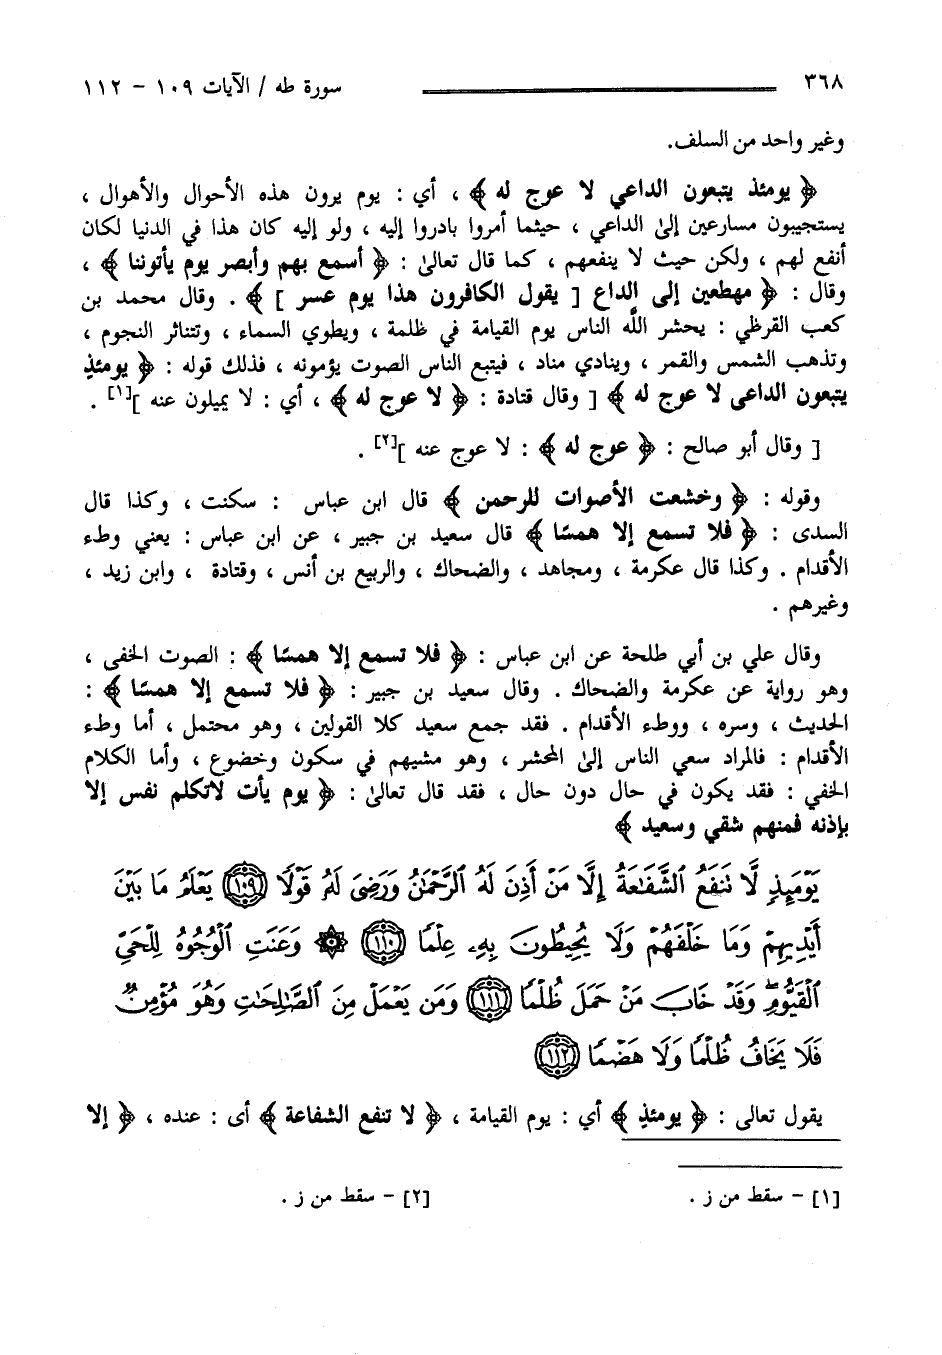 ٣٦٨ سورة طه / الآيات ١٠٩ - ١١٢
وغير واحد من السلف.
﴿ يومئذ يتبعون الداعي لا عوج له ﴾ ، أي : يوم يرون هذه الأحوال والأهوال ،
يستجيبون مسارعين إلىٰ الداعي ، حيثما أمروا بادروا إليه ، ولو إليه كان هذا في الدنيا لكان
أنفع لهم ، ولكن حيث لا ينفعهم ، كما قال تعالىٰ : ﴿ أسمع بهم وأبصر يوم يأتوننا ﴾ ،
وقال : ﴿ مهطعين إلى الداع [ يقول الكافرون هذا يوم عسر ] ﴾ . وقال محمد بن
كعب القرظي : يحشر اللَّه الناس يوم القيامة في ظلمة ، ويطوي السماء ، وتتناثر النجوم ،
وتذهب الشمس والقمر ، وينادي مناد ، فيتبع الناس الصوت يؤمونه ، فذلك قوله : ﴿ يومئذٍ
يتبعون الداعى لا عوج له ﴾ [ وقال قتادة : ﴿ لا عوج له ﴾ ، أي : لا يميلون عنه ][١] .
[ وقال أبو صالح : ﴿ عوج له ﴾ : لا عوج عنه ][٢] .
وقوله : ﴿ وخشعت الأصوات للرحمن ﴾ قال ابن عباس : سكنت ، وكذا قال
السدى : ﴿ فلا تسمع إلا همسًا ﴾ قال سعيد بن جبير ، عن ابن عباس : يعني وطء
الأقدام . وكذا قال عكرمة ، ومجاهد ، والضحاك ، والربيع بن أنس ، وقتادة ، وابن زيد ،
وغيرهم .
وقال علي بن أبي طلحة عن ابن عباس : ﴿ فلا تسمع إلا همسًا ﴾ : الصوت الخفى ،
وهو رواية عن عكرمة والضحاك . وقال سعيد بن جبير : ﴿ فلا تسمع إلا همسًا ﴾ :
الحديث ، وسره ، ووطء الأقدام . فقد جمع سعيد كلا القولين ، وهو محتمل ، أما وطء
الأقدام : فالمراد سعي الناس إلىٰ المحشر ، وهو مشيهم في سكون وخضوع ، وأما الكلام
الخفي : فقد يكون في حال دون حال ، فقد قال تعالىٰ : ﴿ يوم يأت لاتكلم نفس إلا
بإذنه فمنهم شقي وسعيد ﴾
يَوْمَئِذٍ لَّا تَنفَعُ ٱلشَّفَٰعَةُ إِلَّا مَنْ أَذِنَ لَهُ ٱلرَّحْمَٰنُ وَرَضِىَ لَهُۥ قَوْلًا ١٠٩ يَعْلَمُ مَا بَيْنَ
أَيْدِيهِمْ وَمَا خَلْفَهُمْ وَلَا يُحِيطُونَ بِهِۦ عِلْمًا ١١٠ ۞ وَعَنَتِ ٱلْوُجُوهُ لِلْحَىِّ
ٱلْقَيُّومِ ۖ وَقَدْ خَابَ مَنْ حَمَلَ ظُلْمًا ١١١ وَمَن يَعْمَلْ مِنَ ٱلصَّٰلِحَٰتِ وَهُوَ مُؤْمِنٌ
فَلَا يَخَافُ ظُلْمًا وَلَا هَضْمًا ١١٢
يقول تعالى : ﴿ يومئذٍ ﴾ أي : يوم القيامة ، ﴿ لا تنفع الشفاعة ﴾ أى : عنده ، ﴿ إلا
[١] - سقط من ز . [٢] - سقط من ز .